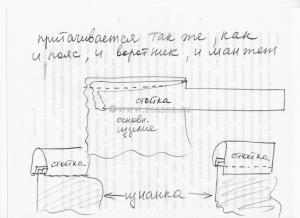 притачивается так же, как
и пояс, и воротник, и манжет
стойка
основн.
изделие
стойка
стойка
изнанка